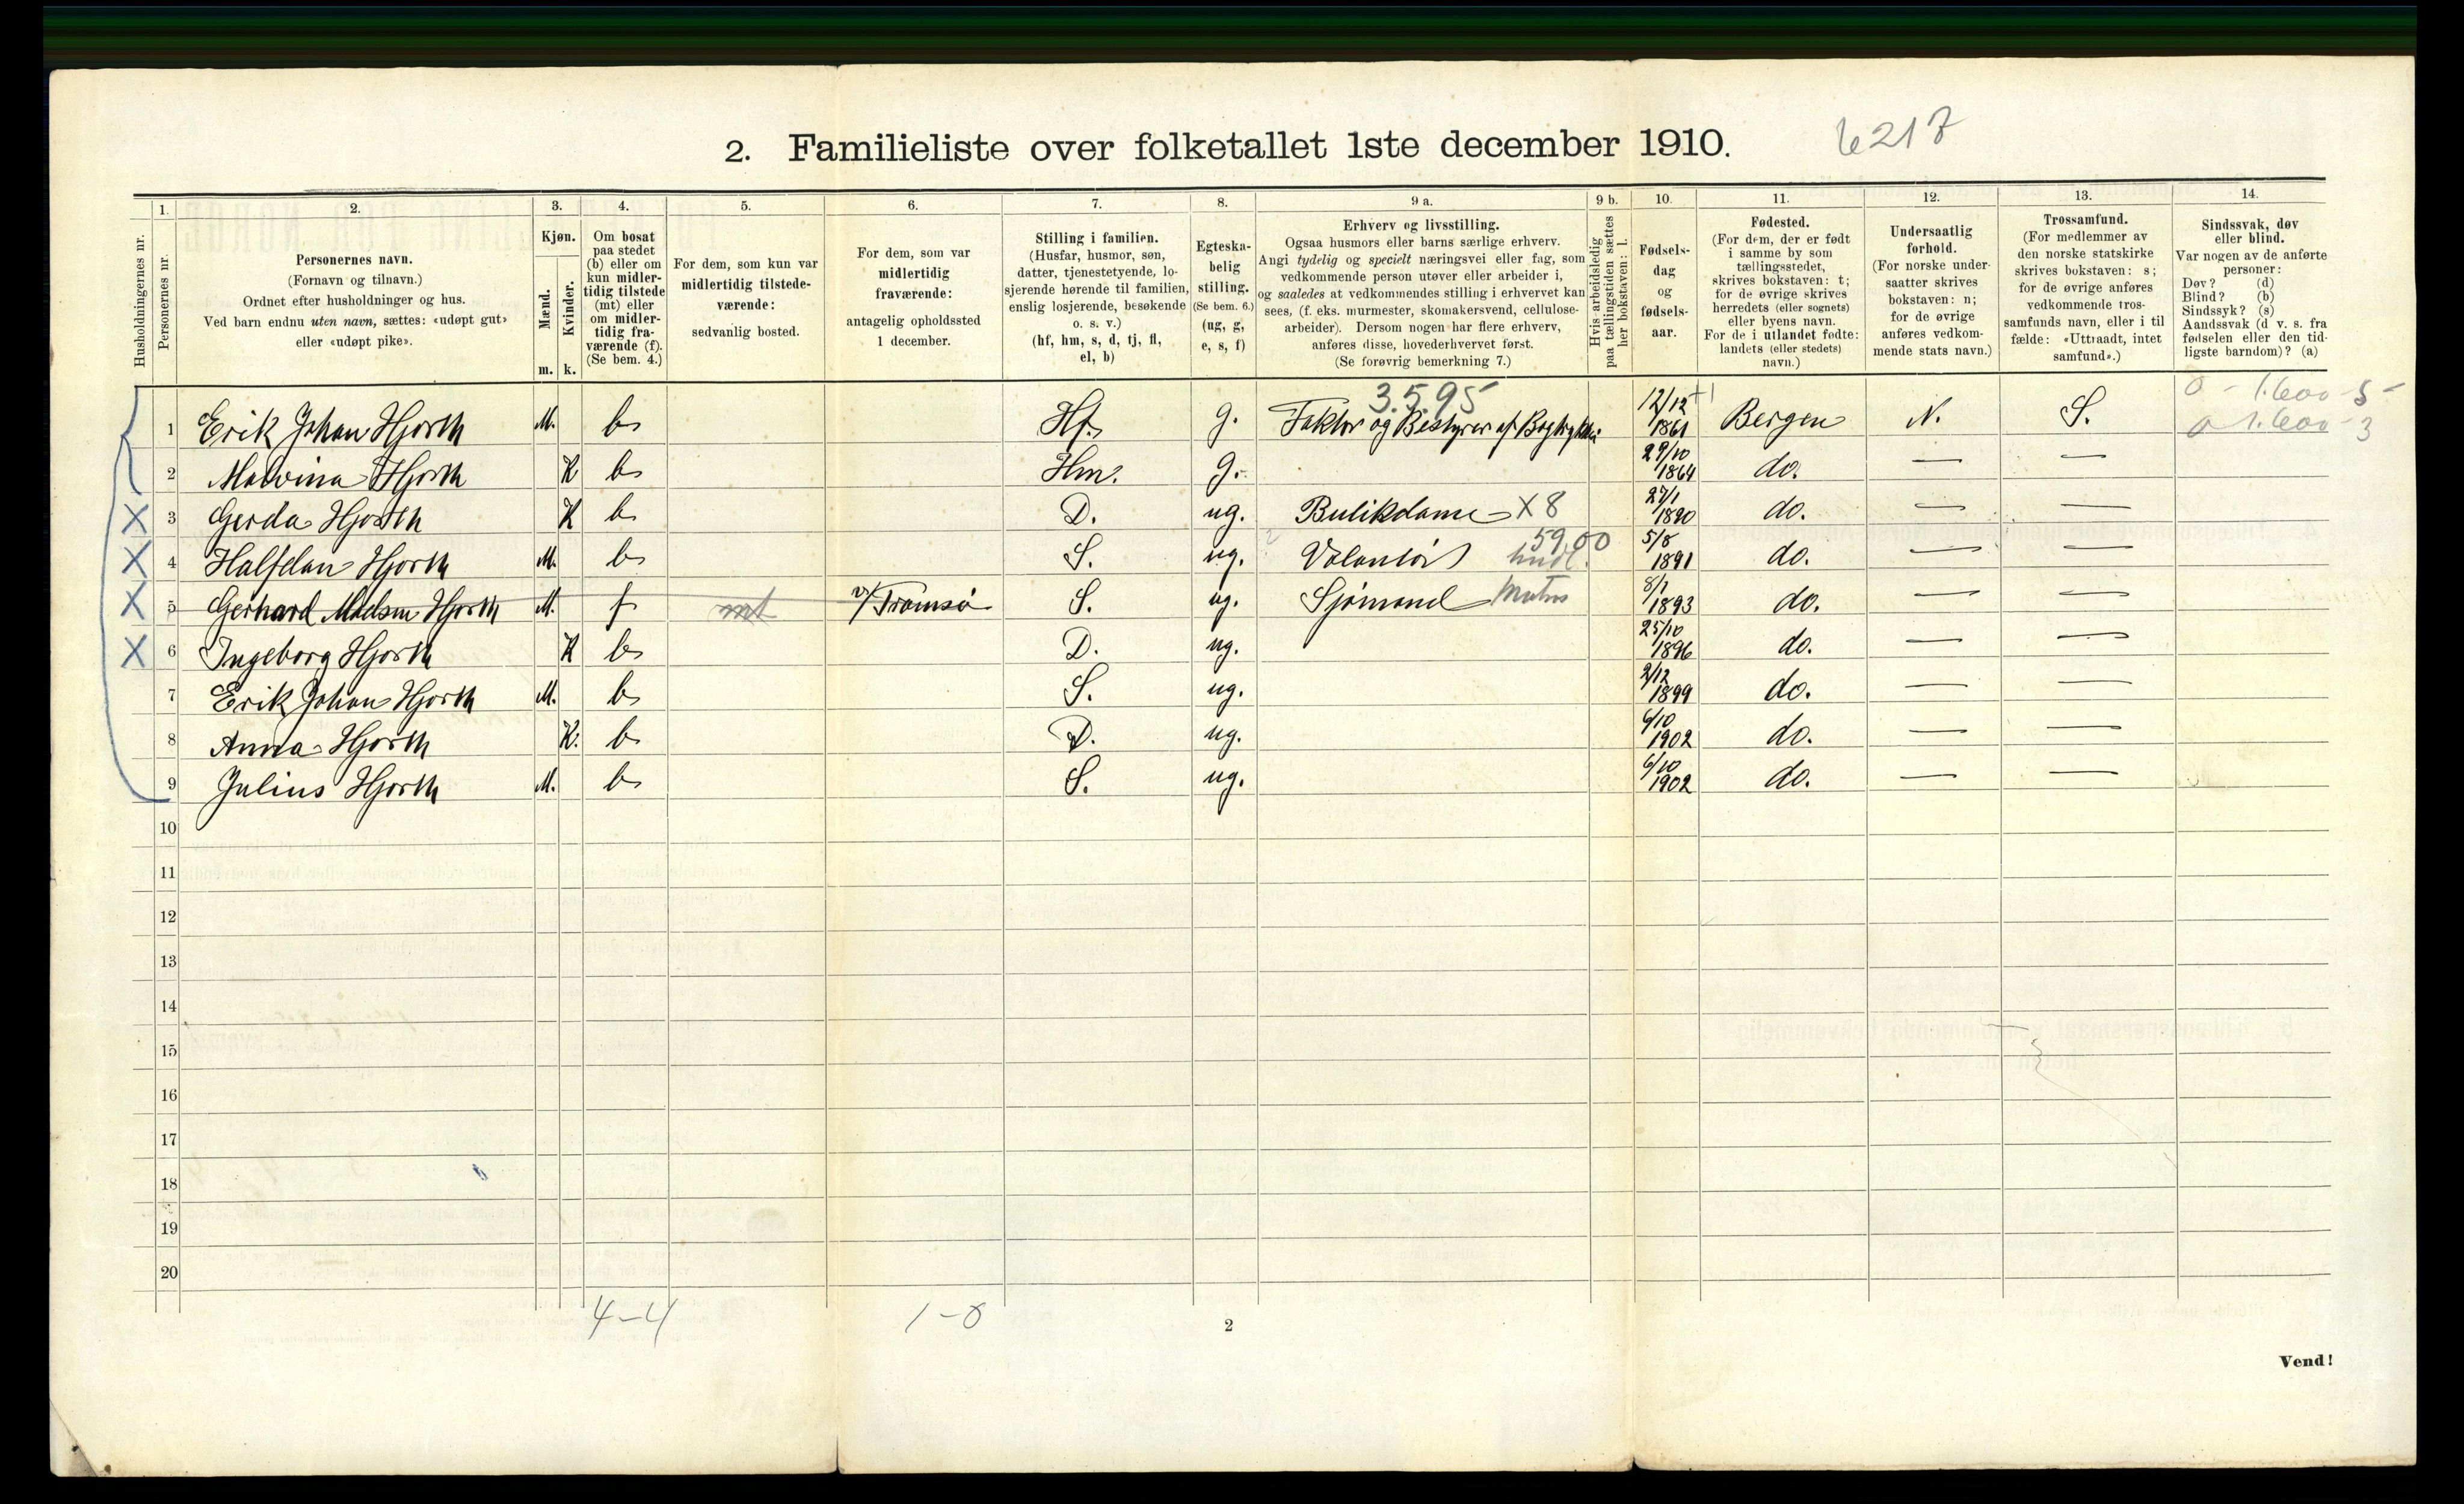 2. Familieliste over folketallet 1ste december 1910.
6217
1. 2. 3. 4. 5. 6. 7. 8. 9 a. 9 b. 10. 11. 12. 13. 14.
Husholdningernes nr.
Personernes nr.
Personernes navn.
(Fornavn og tilnavn.)
Ordnet efter husholdninger og hus.
Ved barn endnu uten navn, sættes: «udøpt gut»
eller «udøpt pike».
Kjøn.
Mænd.
Kvinder.
m. k.
Om bosat
paa stedet
(b) eller om
kun midler-
tidig tilstede
(mt) eller
om midler-
tidig fra-
værende (f).
(Se bem. 4.)
For dem, som kun var
midlertidig tilstede-
værende:
sedvanlig bosted.
For dem, som var
midlertidig
fraværende:
antagelig opholdssted
1 december.
Stilling i familien.
(Husfar, husmor, søn,
datter, tjenestetyende, lo-
sjerende hørende til familien,
enslig losjerende, besøkende
o. s. v.)
(hf, hm, s, d, tj, fl,
el, b)
Egteska-
belig
stilling.
(Se bem. 6.)
(ug, g,
e, s, f)
Erhverv og livsstilling.
Ogsaa husmors eller barns særlige erhverv.
Angi tydelig og specielt næringsvei eller fag, som
vedkommende person utøver eller arbeider i,
og saaledes at vedkommendes stilling i erhvervet kan
sees, (f. eks. murmester, skomakersvend, cellulose-
arbeider). Dersom nogen har flere erhverv,
anføres disse, hovederhvervet først.
(Se forøvrig bemerkning 7.)
Hvis arbeidsledig
paa tællingstiden sættes
her bokstaven: l.
Fødsels-
dag
og
fødsels-
aar.
Fødested.
(For dem, der er født
i samme by som
tællingsstedet,
skrives bokstaven: t;
for de øvrige skrives
herredets (eller sognets)
eller byens navn.
For de i utlandet fødte:
landets (eller stedets)
navn.)
Undersaatlig
forhold.
(For norske under-
saatter skrives
bokstaven: n;
for de øvrige
anføres vedkom-
mende stats navn.)
Trossamfund.
(For medlemmer av
den norske statskirke
skrives bokstaven: s;
for de øvrige anføres
vedkommende tros-
samfunds navn, eller i til
fælde: «Uttraadt, intet
samfund».)
Sindssvak, døv
eller blind.
Var nogen de anførte
personer:
Døv? (d)
Blind? (b)
Sindssyk? (s)
Aandssvak (d v. s. fra
fødselen eller den tid-
ligste barndom)? (a)
3.5.95
0 - 1.600 - 5 -
0 1.600 - 3
1 Erik Johan Hjorth M. b Hf. g. Faktor og Bestyrer af Bogtrykkeri 12/12 1861 Bergen N. S.
2 Malvina Hjorth K b Hm. g. 29/10 1864 do. — —
3 Gerda Hjorth K b D. ug. Butikdame X8 27/1 1890 do. — —
59,00
4 Halfdan Hjorth M. b S. ug. Volontør handl. 5/8 1891 do. — —
5 Gerhard Madsen Hjorth M. f mt v/ Tromsø S. ug. Sjømand Matros 8/1 1893 do. — —
6 Ingeborg Hjorth K b D. ug. 25/10 1896 do. — —
7 Erik Johan Hjorth M. b S. ug. 2/12 1899 do. — —
8 Anna Hjorth K. b D. ug. 6/10 1902 do. — —
9 Julius Hjorth M. b S. ug. 6/10 1902 do. — —
10
11
12
13
14
15
16
17
18
19
20
4-4 1-0
2
Vend!